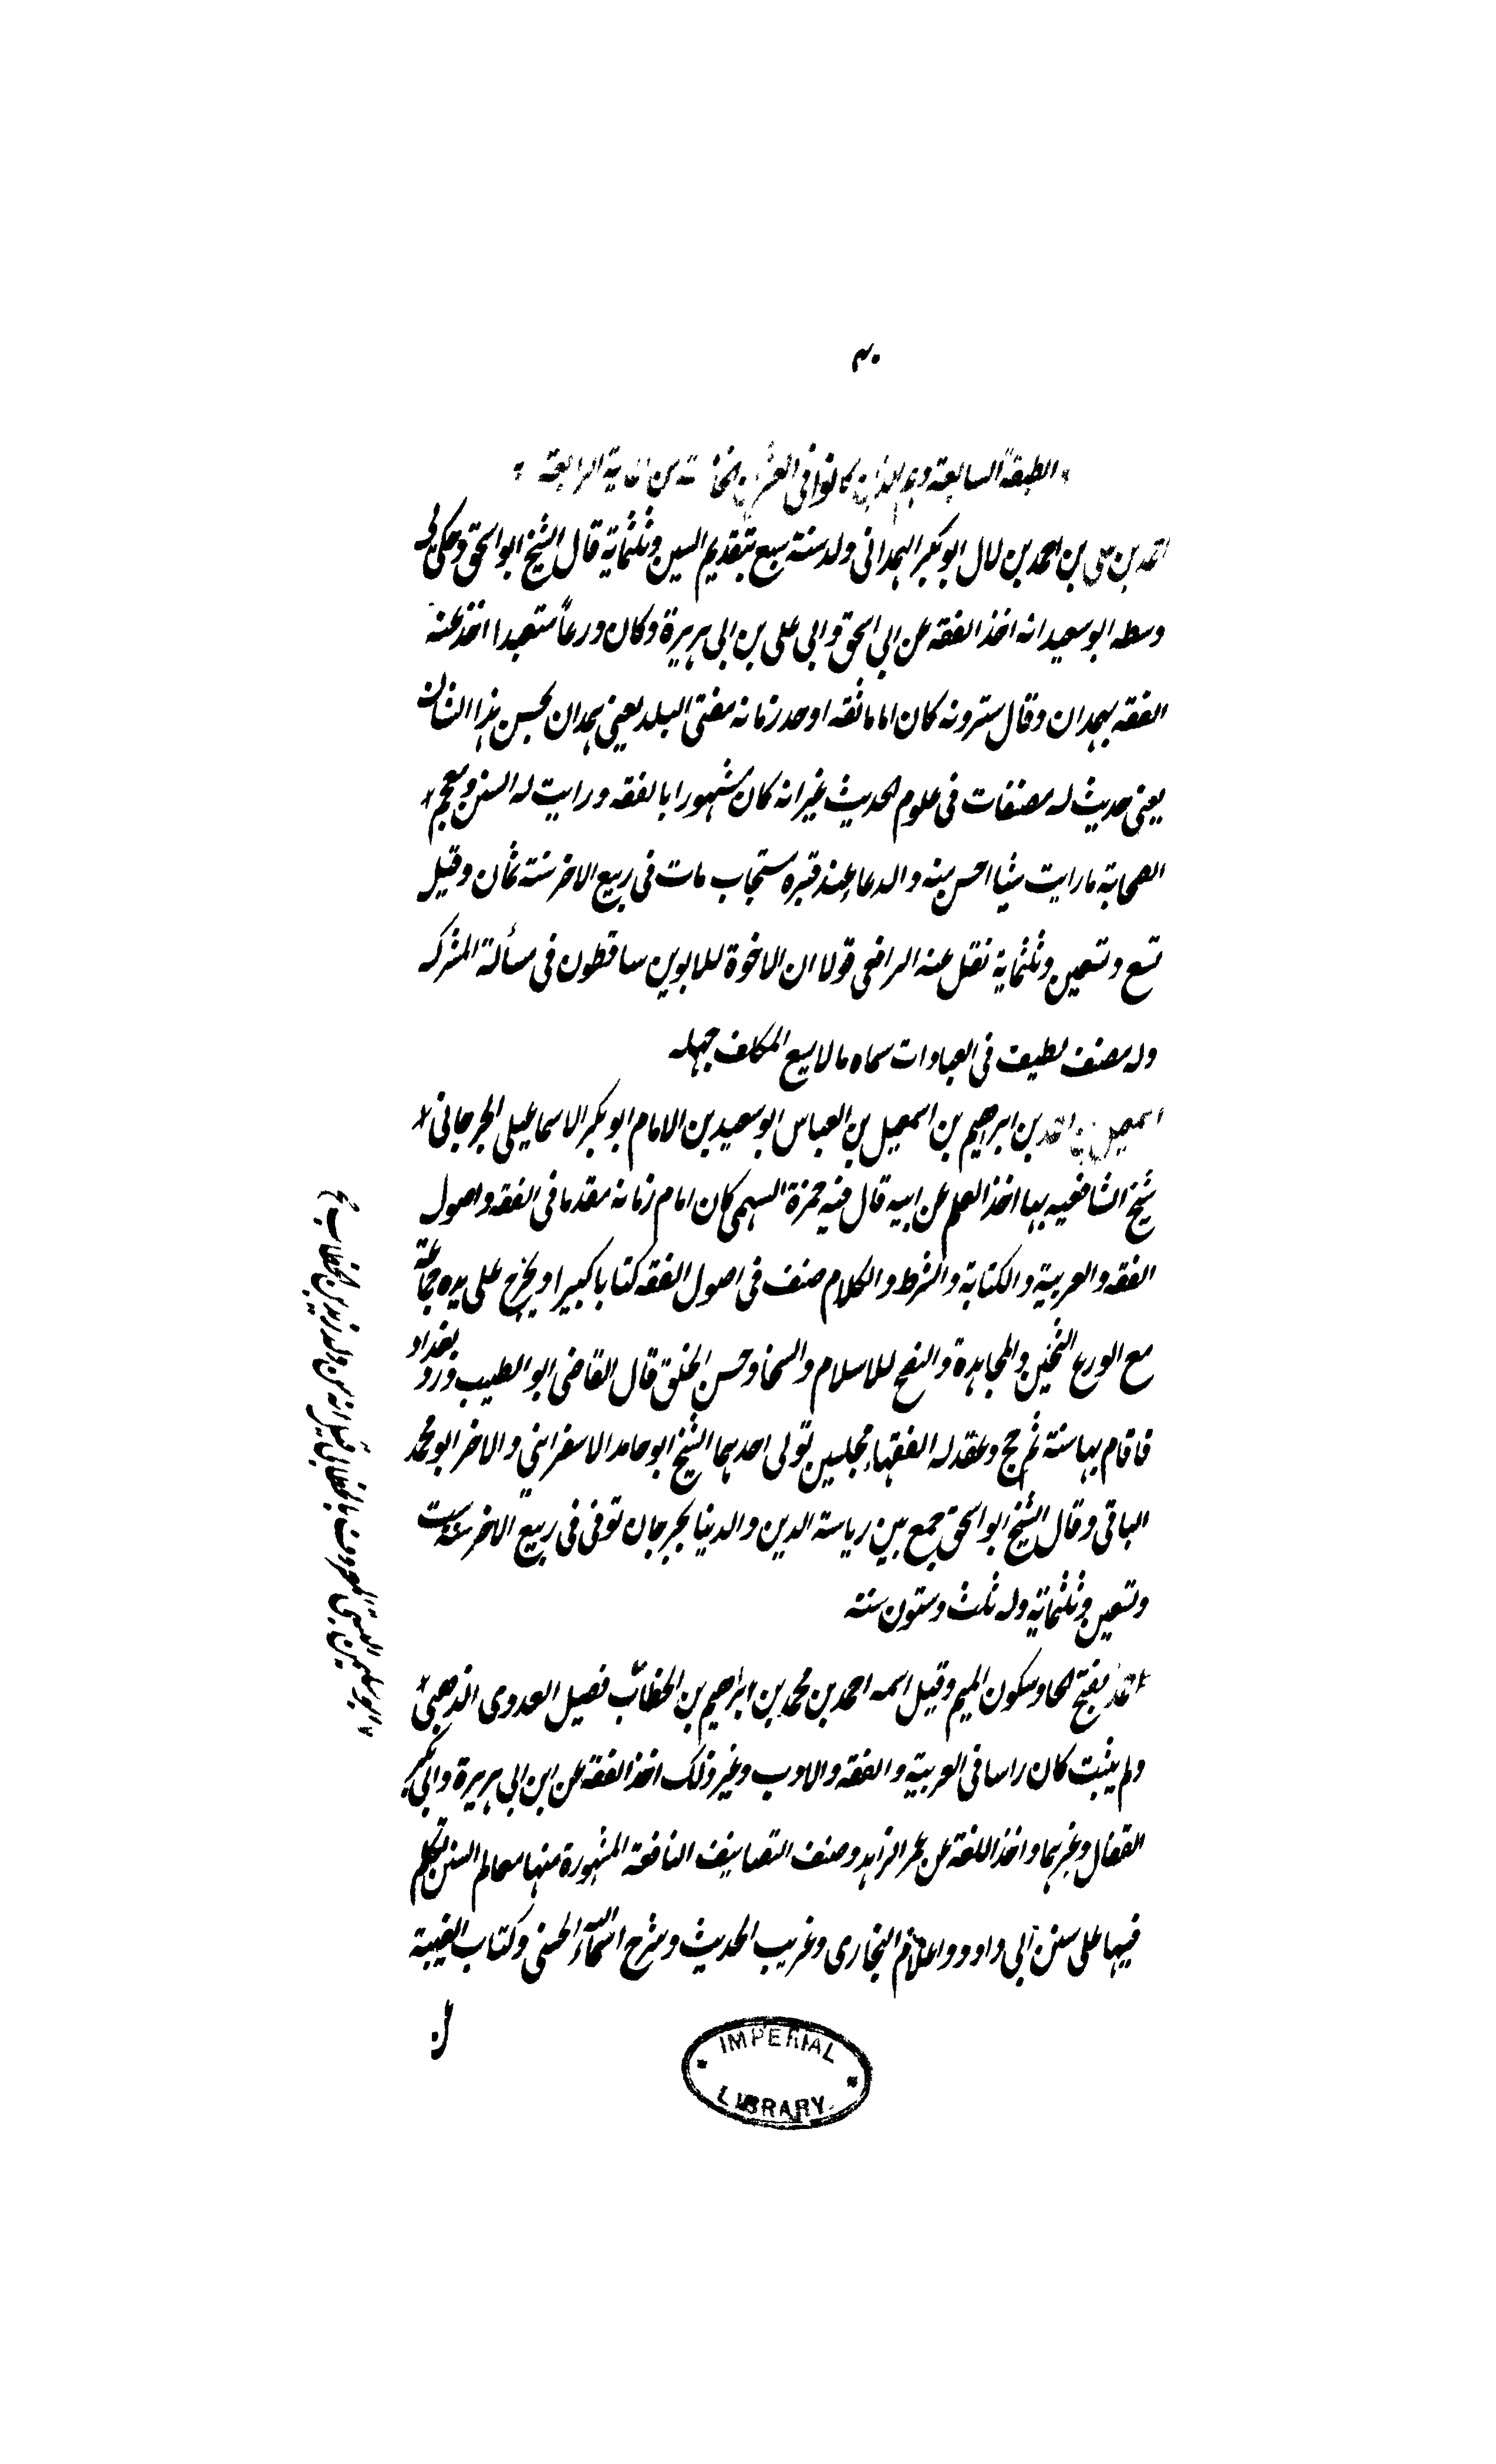 ٣٠
الطبقة السابعة وهم الذين كانوا فى العشرين الخامسة من المایة الرابعة
احمد بن على بن احمد بن لال ابو بکر الہمدانی ولد سنة سبع بتقدیم السین وثلثمایة قال الشیخ ابو اسحق وحکی لی
وسطه ابو سعید انه اخذ الفقه عن ابی اسحق وابی علی بن ابی ہریرة وکان ورعاً متعبدا اخذ عنه
الفقه بہمدان وقال سترونه کان اماما ثقه اوحد زمانه مفتی البلد یعنی ہمدان یحسن ہذا الشان
یعنی حدیث له مصنفات فی علوم الحدیث غیر انه کان مشہورا بالفقه ورایت له السنن ومعجم
الصحابة ما رایت شیئا احسن منه والدعاء عند قبره مستجاب مات فی ربیع الاخر سنة ثمان وقیل
تسع وتسعین وثلثمایة نقل عنه الرافعی قولا ان الاخوة للابوین ساقطون فی مسألة المشرکه
وله مصنف لطیف فی العبادات سماه ما لا یسع المکلف جہله
اسمعیل بن احمد بن ابراهیم بن اسمعیل بن العباس ابو سعید بن الامام ابو بکر الاسماعیلی الجرجانی
شیخ الشافعیه بہا اخذ العلم عن ابیه قال فیه حمزة السہمی کان امام زمانه مقدما فی الفقه واصول
الفقه والعربیة والکتابة والشرط والکلام صنف فی اصول الفقه کتابا کبیرا ویخرج علی یده جماعة
مع الورع الثخین والمجاہدة والنصح للاسلام والسخا وحسن الخلق قال القاضی ابو الطیب ورد بغداد
فاقام بہا سنة ثم حج وعقد له الفقہاء مجلسین تولی احدہما الشیخ ابو حامد الاسفراینی والاخر ابو محمد
الباقی وقال الشیخ ابو اسحق جمع بین ریاسة الدین والدنیا بجرجان توفی فی ربیع الاخر سنة ست
وتسعین وثلثمایة وله ثلث وستون سنة
احمد بفتح الحا وسکون المیم وقیل اسمه احمد بن محمد بن ابراهیم بن الخطاب فصیل العدوی الذهبی
ولم یثبت کان راسا فی العربیة والفقه والادب وغیر ذلک اخذ الفقه عن ابن ابی ہریرة وابی بکر
القفال وغیرہما واخذ اللغة عن عمر الزاہد وصنف التصانیف النافعة المشہورة منہا معالم السنن تکلم
فیہا علی سنن ابی داود واعلام البخاری وغریب الحدیث وشرح اسماء الله الحسنی وکتاب الغیبة
IMPERIAL
LIBRARY